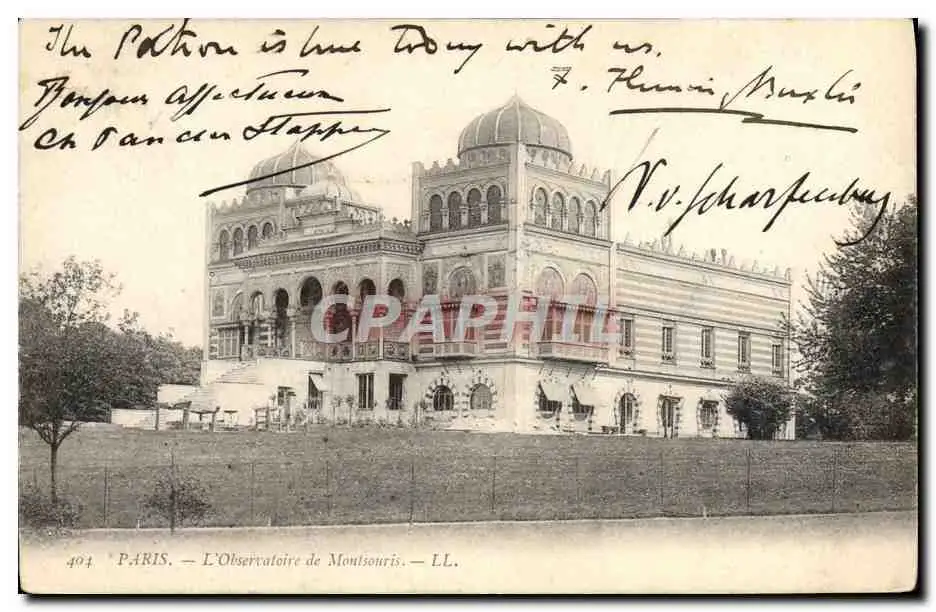 The Patron is here Today with us.
Bonjour Affectueux
7. Henri
Ch Van der Stappen
V. v. Scharfenberg
CAPHILL
404 PARIS. — L'Observatoire de Montsouris. — LL.